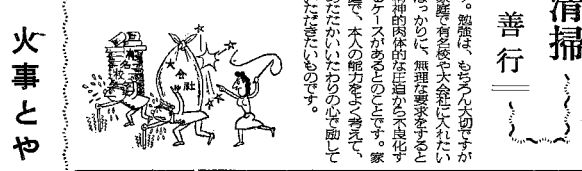 清掃
善行
。勉強は、もちろん大切ですが
家庭で有名校や大会社に入れたい
ばっかりに、無理な要求をすると
精神的肉体的な圧迫から不良化す
るケースがあるとのことです。家
庭で、本人の能力をよく考えて、
あたたかいいたわりの心で励して
いただきたいものです。
大会社
名校
火事とや